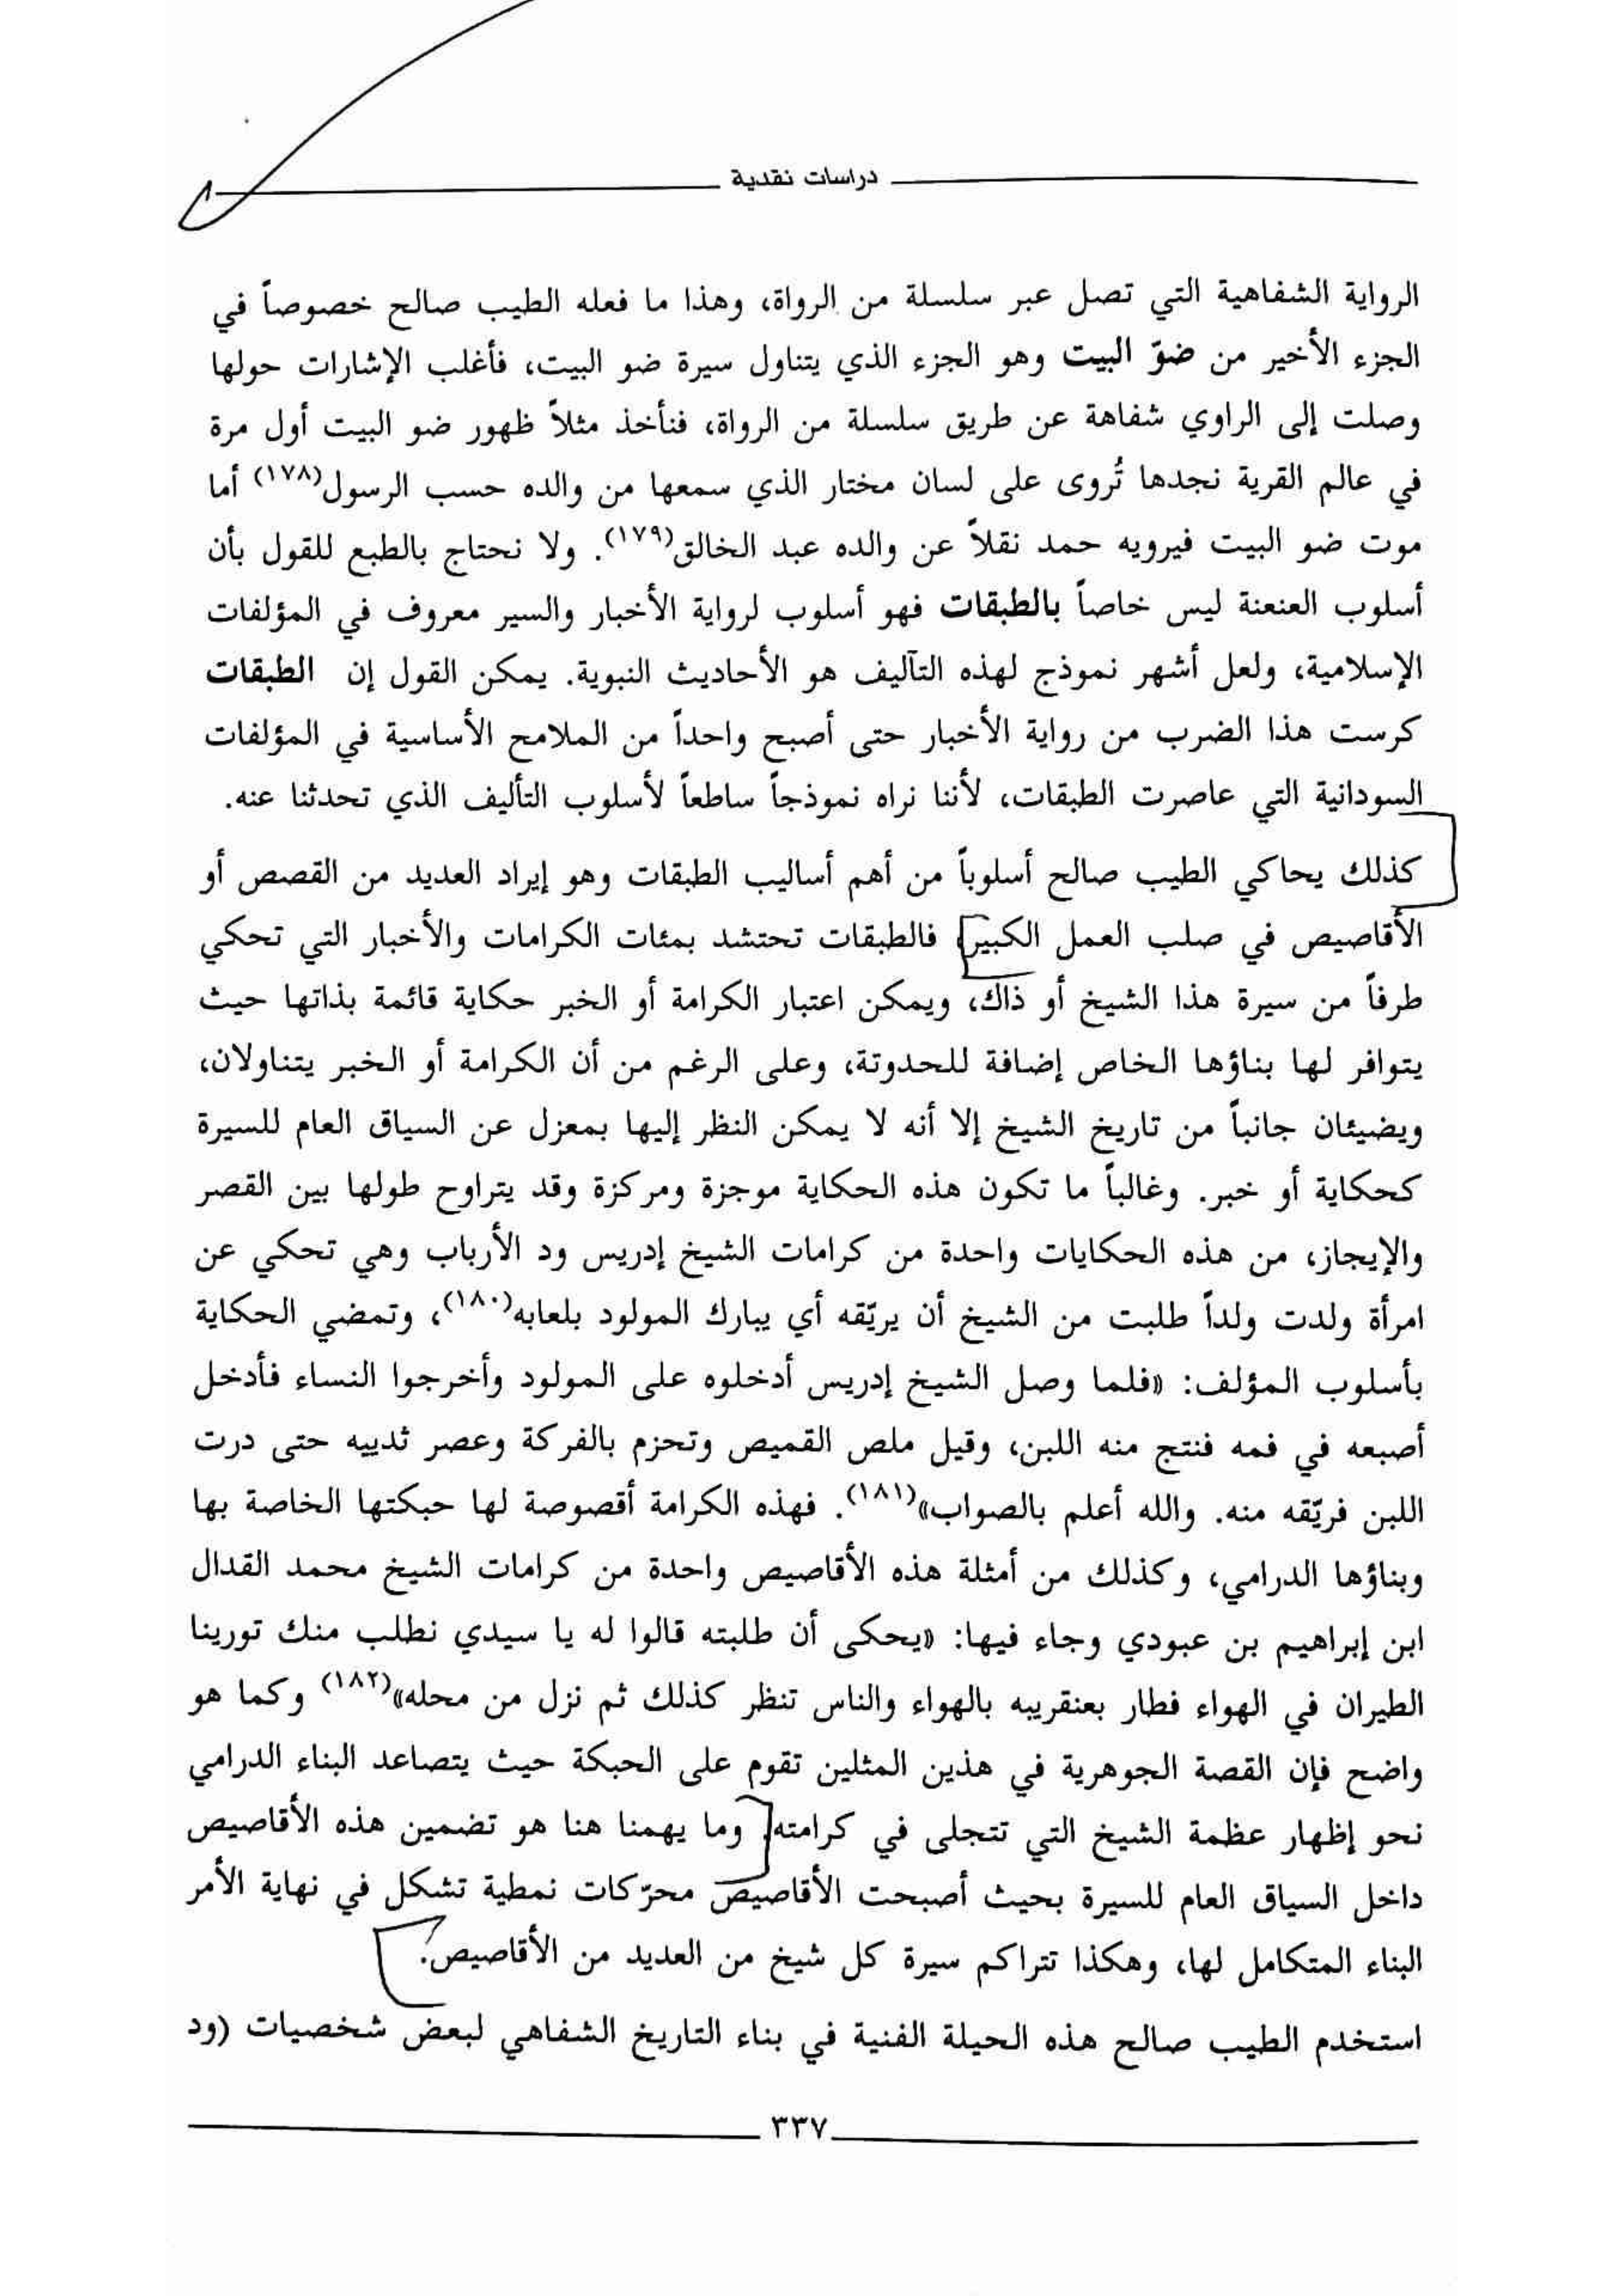 دراسات نقدية
الرواية الشفاهية التي تصل عبر سلسلة من الرواة، وهذا ما فعله الطيب صالح خصوصاً في
الجزء الأخير من ضوّ البيت وهو الجزء الذي يتناول سيرة ضو البيت، فأغلب الإشارات حولها
وصلت إلى الراوي شفاهة عن طريق سلسلة من الرواة، فنأخذ مثلاً ظهور ضو البيت أول مرة
في عالم القرية نجدها تُروى على لسان مختار الذي سمعها من والده حسب الرسول(١٧٨) أما
موت ضو البيت فيرويه حمد نقلاً عن والده عبد الخالق(١٧٩). ولا نحتاج بالطبع للقول بأن
أسلوب العنعنة ليس خاصاً بالطبقات فهو أسلوب لرواية الأخبار والسير معروف في المؤلفات
الإسلامية، ولعل أشهر نموذج لهذه التآليف هو الأحاديث النبوية. يمكن القول إن الطبقات
كرست هذا الضرب من رواية الأخبار حتى أصبح واحداً من الملامح الأساسية في المؤلفات
السودانية التي عاصرت الطبقات، لأننا نراه نموذجاً ساطعاً لأسلوب التأليف الذي تحدثنا عنه.
كذلك يحاكي الطيب صالح أسلوباً من أهم أساليب الطبقات وهو إيراد العديد من القصص أو
الأقاصيص في صلب العمل الكبير، فالطبقات تحتشد بمئات الكرامات والأخبار التي تحكي
طرفاً من سيرة هذا الشيخ أو ذاك، ويمكن اعتبار الكرامة أو الخبر حكاية قائمة بذاتها حيث
يتوافر لها بناؤها الخاص إضافة للحدوتة، وعلى الرغم من أن الكرامة أو الخبر يتناولان،
ويضيئان جانباً من تاريخ الشيخ إلا أنه لا يمكن النظر إليها بمعزل عن السياق العام للسيرة
كحكاية أو خبر. وغالباً ما تكون هذه الحكاية موجزة ومركزة وقد يتراوح طولها بين القصر
والإيجاز، من هذه الحكايات واحدة من كرامات الشيخ إدريس ود الأرباب وهي تحكي عن
امرأة ولدت ولداً طلبت من الشيخ أن يريّقه أي يبارك المولود بلعابه(١٨٠)، وتمضي الحكاية
بأسلوب المؤلف: «فلما وصل الشيخ إدريس أدخلوه على المولود وأخرجوا النساء فأدخل
أصبعه في فمه فنتج منه اللبن، وقيل ملص القميص وتحزم بالفركة وعصر ثدييه حتى درت
اللبن فريّقه منه. والله أعلم بالصواب»(١٨١). فهذه الكرامة أقصوصة لها حبكتها الخاصة بها
وبناؤها الدرامي، وكذلك من أمثلة هذه الأقاصيص واحدة من كرامات الشيخ محمد القدال
ابن إبراهيم بن عبودي وجاء فيها: «يحكى أن طلبته قالوا له يا سيدي نطلب منك تورينا
الطيران في الهواء فطار بعنقريبه بالهواء والناس تنظر كذلك ثم نزل من محله»(١٨٢) وكما هو
واضح فإن القصة الجوهرية في هذين المثلين تقوم على الحبكة حيث يتصاعد البناء الدرامي
نحو إظهار عظمة الشيخ التي تتجلى في كرامته. وما يهمنا هنا هو تضمين هذه الأقاصيص
داخل السياق العام للسيرة بحيث أصبحت الأقاصيص محرّكات نمطية تشكل في نهاية الأمر
البناء المتكامل لها، وهكذا تتراكم سيرة كل شيخ من العديد من الأقاصيص.
استخدم الطيب صالح هذه الحيلة الفنية في بناء التاريخ الشفاهي لبعض شخصيات (ود
٣٣٧